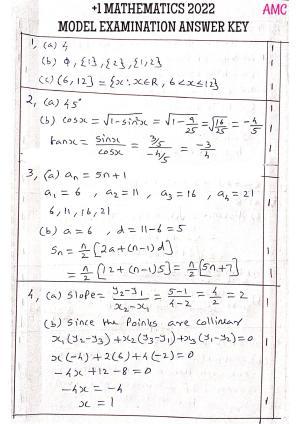 +1 MATHEMATICS 2022
AMC
MODEL EXAMINATION ANSWER KEY
1, (a) 4
(b) φ, {1}, {2}, {1,2}
(c) (6,12] = {x : x∈R, 6<x≤12}
2, (a) 45°
(b) cosx = √1-sin²x = √1-9/25 = √16/25 = -4/5
tanx = sinx/cosx = 3/5/-4/5 = -3/4
3, (a) aₙ = 5n+1
a₁ = 6 , a₂ = 11 , a₃ = 16 , a₄ = 21
6, 11, 16, 21
(b) a = 6 , d = 11-6 = 5
Sₙ = n/2 [2a+(n-1)d]
= n/2 [12+(n-1)5] = n/2 [5n+7]
4, (a) Slope = y₂-y₁/x₂-x₁ = 5-1/4-2 = 4/2 = 2
(b) Since the Points are collinear
x₁(y₂-y₃)+x₂(y₃-y₁)+x₃(y₁-y₂)=0
x(-4)+2(6)+4(-2)=0
-4x+12-8=0
-4x = -4
x = 1